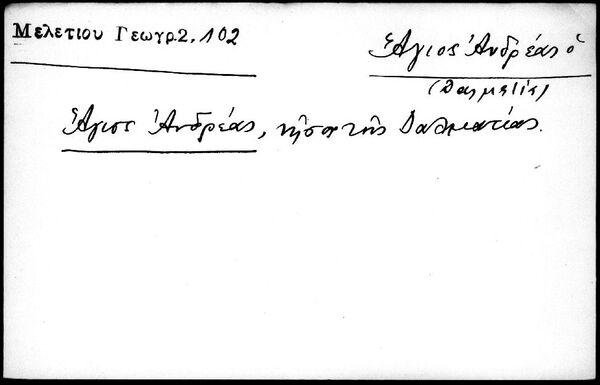 Μελετίου Γεωγρ. 2, 102
Ἅγιος Ἀνδρέας ὁ
(Δαλματία)
Ἅγιος Ἀνδρέας, νῆσος τῆς Δαλματίας.